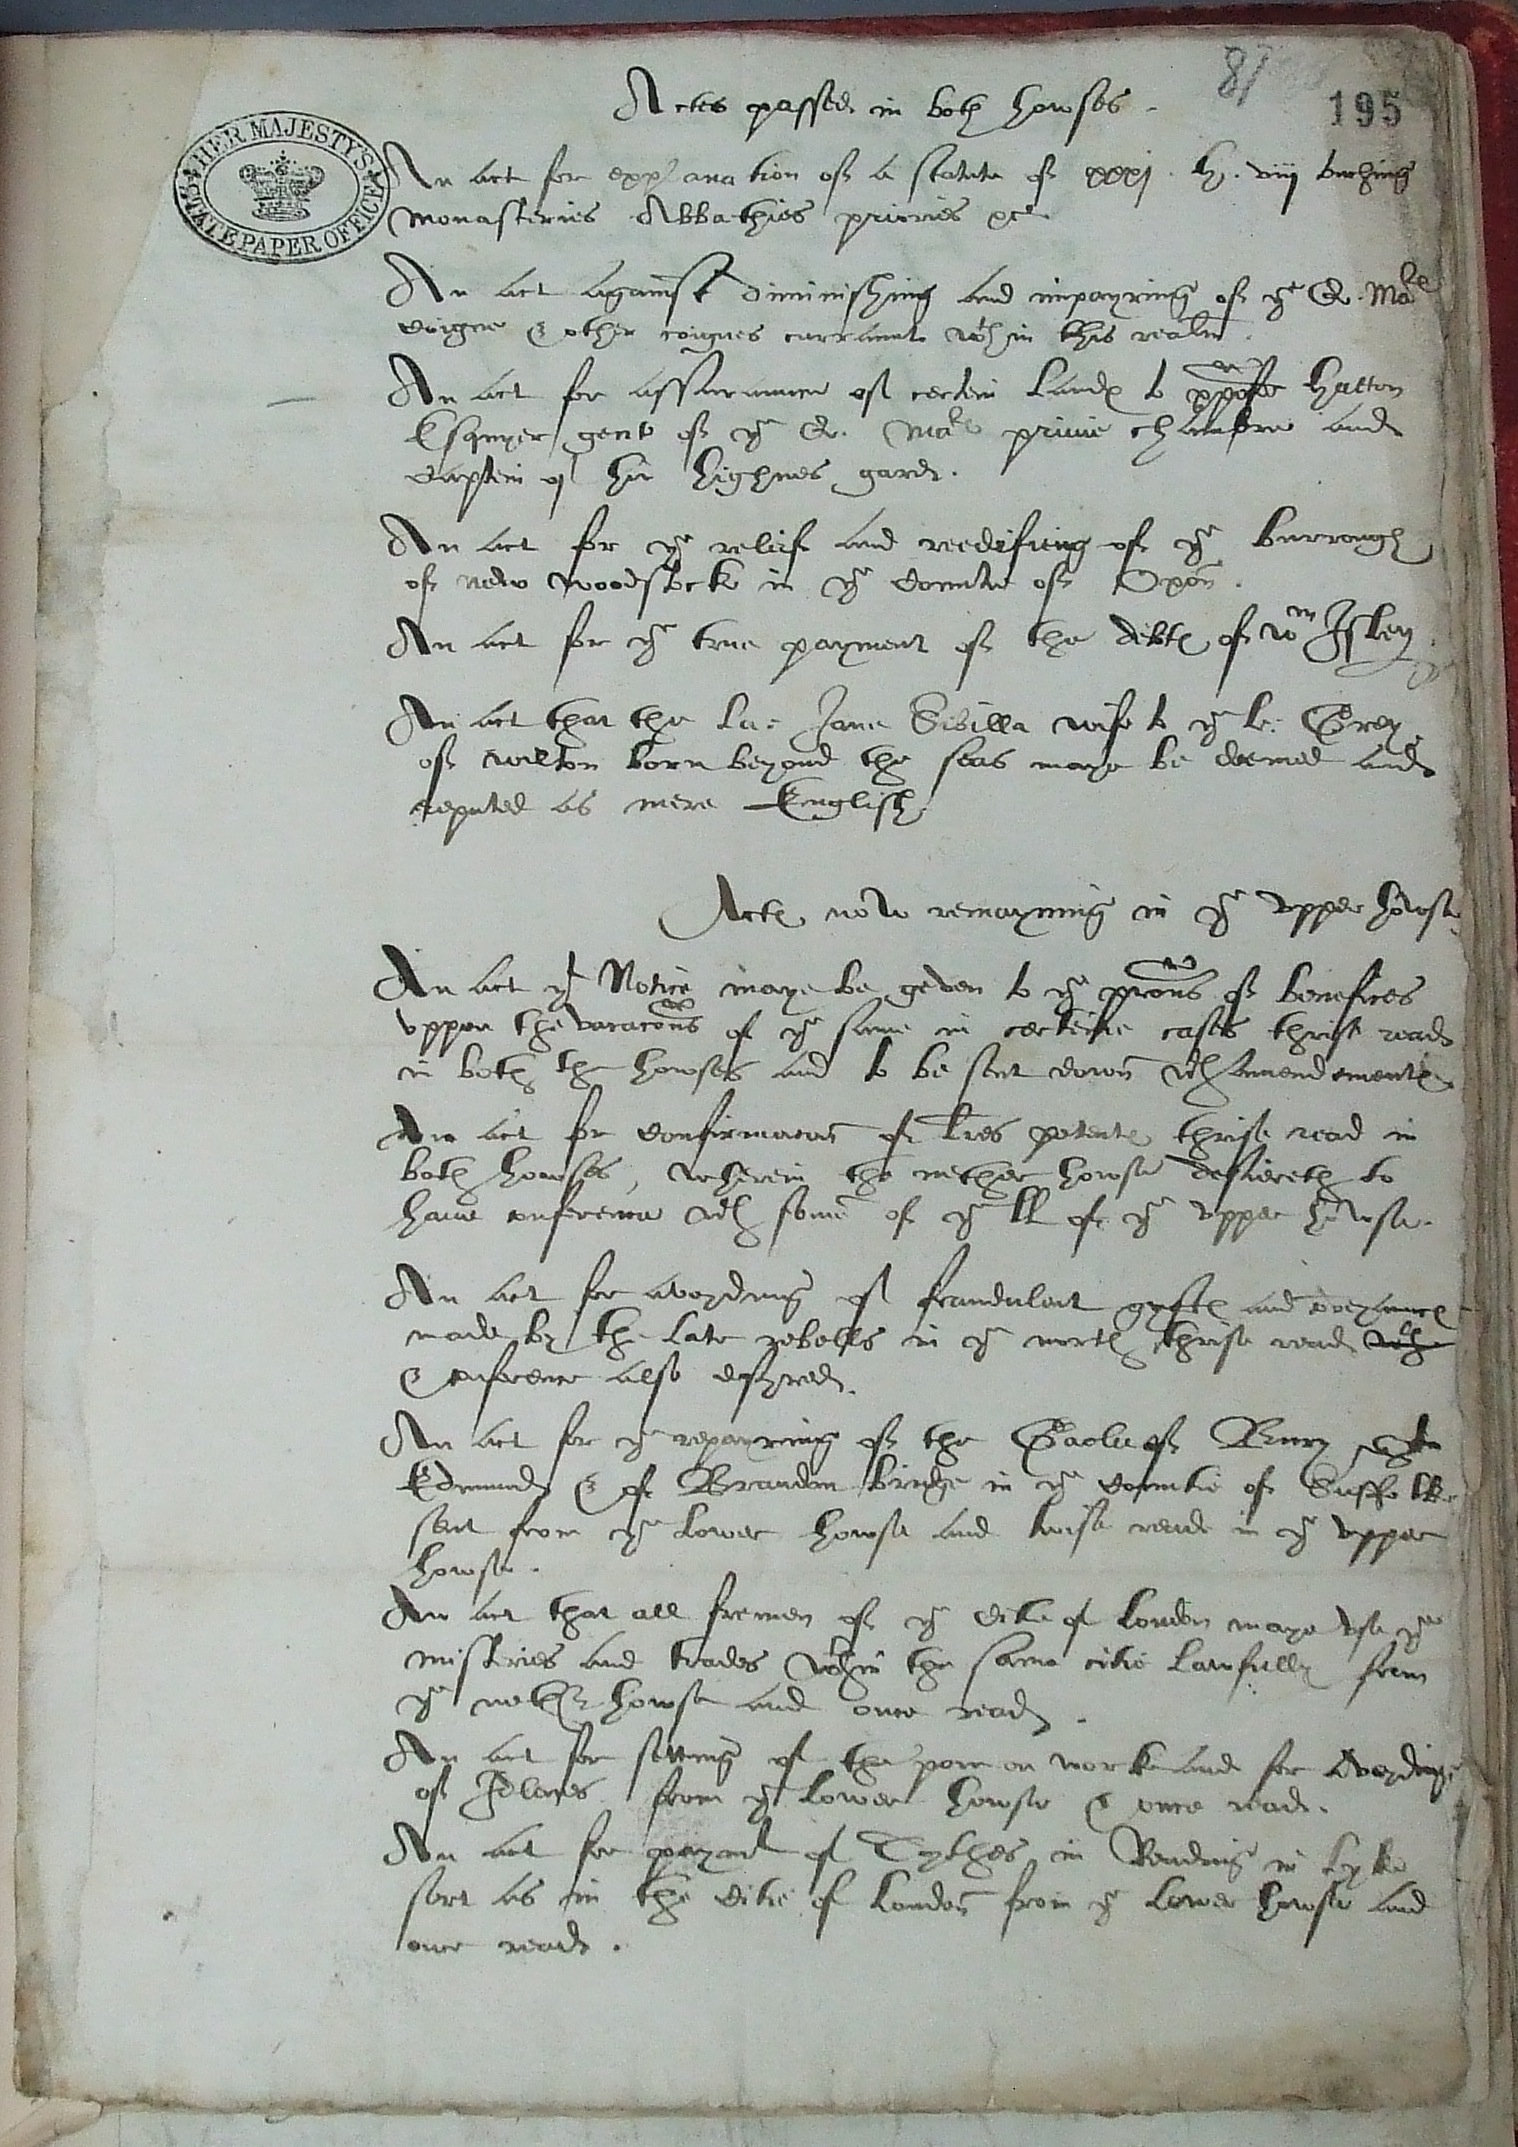 81
195
HER MAJESTY'S STATE PAPER OFFICE
Actes passed in both howses.
An act for explanation of a statute of xxxj. H. viij tuching
monasteries Abbathies priories &c.
An act against diminishing and impayring of ye Q. Mates
coigne & other coignes currannt wthin this realm.
An act for assuraunce of certein Landes to Hatton
Esquyer gent of ye Q. Mates privie chambre and
Captein of hir highnes gard.
An act for ye relief and reedifieng of ye burrough
of new woodstock in ye Countie of Oxon.
An act for ye true payment of the debtes of Wm Isley
An act that the La: Jane Sibilla wife to ye L: Grey
of wilton born beyond the seas maye be deemed and
reputed as mere English
Actes now remayning in ye vpper howse
An act yt Notice maye be geven to ye patrons of benefices
vppon the vacacons of ye same in certeine cases thrise read
in both the howses and to be sent down wth amendementes
An act for confirmacon of lres patentes thrise read in
both howses, wherein the nether howse desiereth to
haue conference wth some of ye ll of ye vpper howse.
An act for avoyding of fraudulent gyftes and conveyances
made by the late rebells in ye north thrise read with
& conference also desyred.
An act for ye repayring of the Gaole of Bury
Edmundes & of Brandon bridge in ye Countie of Suffolke
sent from ye Lower howse and twise read in ye vpper
howse.
An act that all fremen of ye Citie of London maye vse ye
misteries and trades wthin the same citie lawfully from
ye nether howse and once read.
An act for setting of the pore on work and for Avoyding
of Idlenes from ye Lower howse & once read.
An act for paymt of Tythes in Reading in lyke
sort as in the Citie of London from ye Lower howse and
once read.